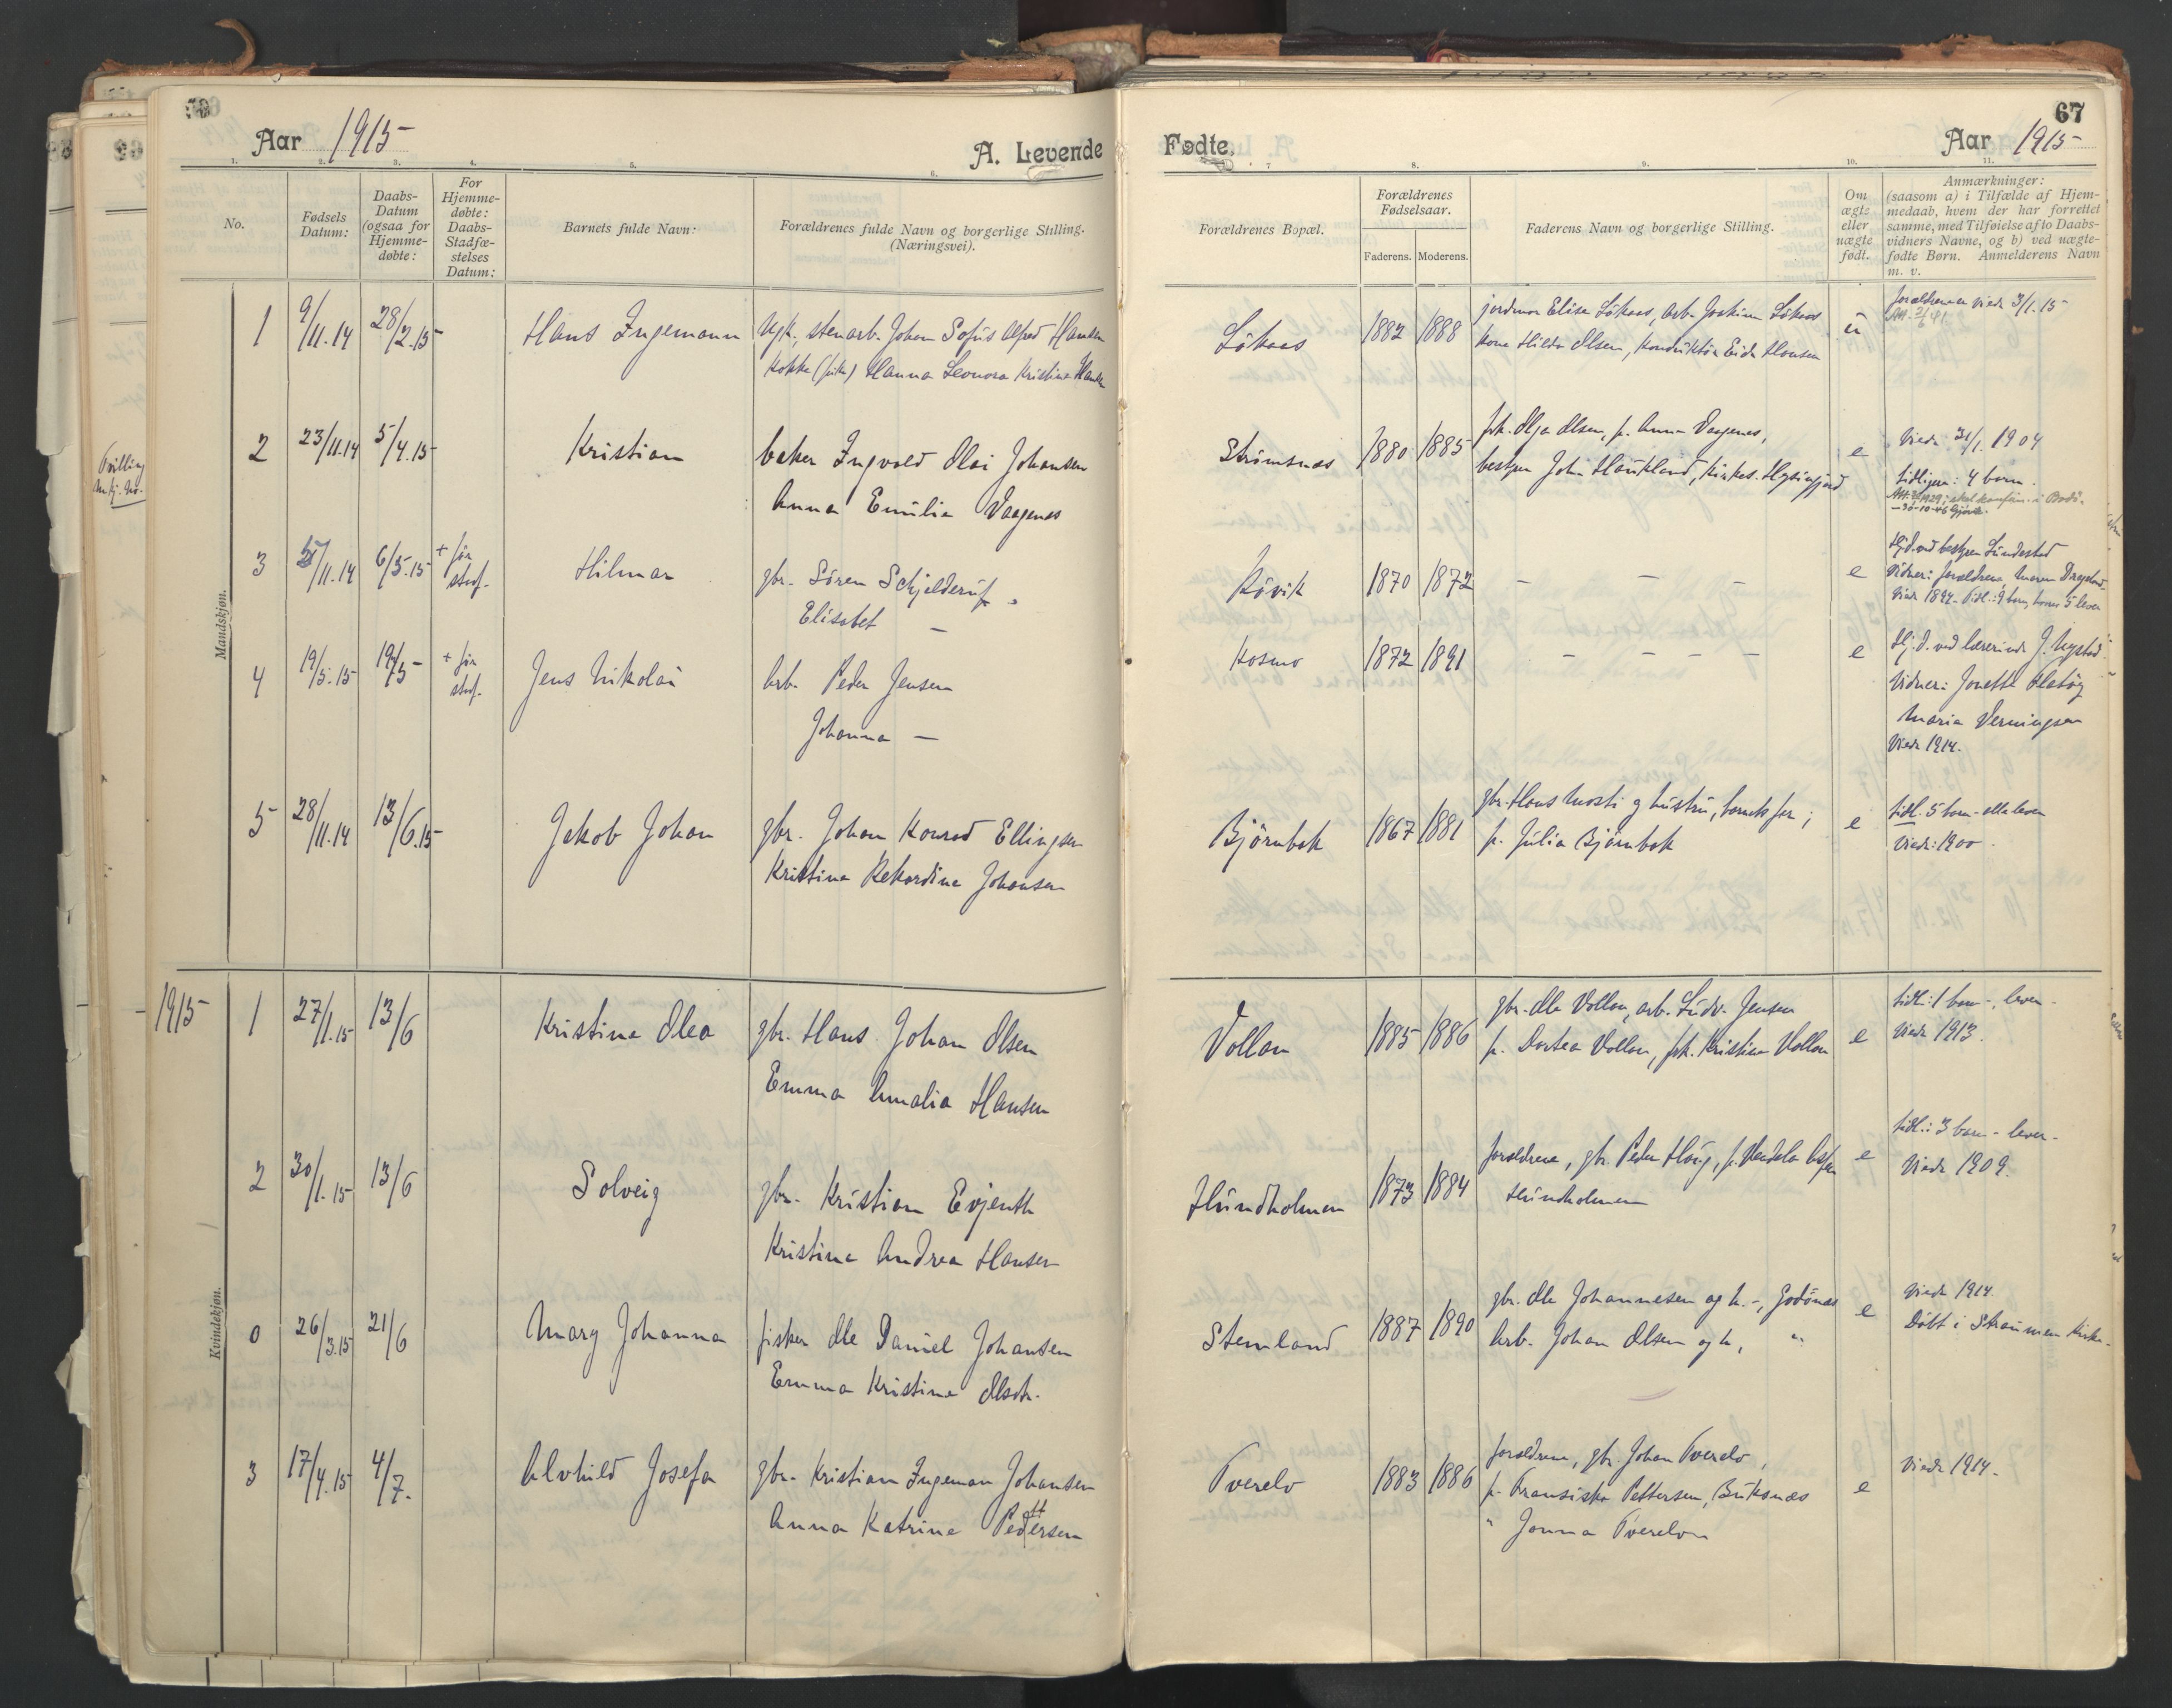 Aar 1915
A. Levende
1. 2. 3. 4. 5. 6.
No.
Fødsels Datum:
Daabs-Datum (ogsaa for Hjemme-døbte:
For Hjemme-døbte: Daabs-Stadfæ-stelses Datum:
Barnets fulde Navn:
Forældrenes fulde Navn og borgerlige Stilling.
(Næringsvei).
Mandskjøn.
1 9/11.14 28/2.15 Hans Ingemann Ugk., stenarb. Johan Sofus Alfred Hansen
Kokke (pike) Hanna Leonora Kristine
2 23/11.14 5/4.15 Kristian baker Ingvald Olai Johansen
Anna Emilie Vaagenes
3 /11.14 6/5.15 + før stadf. Hilmar gbr. Søren Schjelderup
Elisabet —
4 19/5.15 19/5 + før stadf. Jens Nikolai Arb. Peder Jensen
Johanna —
5 28/11.14 13/6.15 Jakob Johan gbr. Johan Konrad Ellingsen
Kristine Rekardine Johansen
Kvindekjøn.
1915
1 27/1.15 13/6 Kristine Olea gbr. Hans Johan Olsen
Emma Amalia Hansen
2 30/1.15 13/6 Solveig gbr. Kristian Evjenth
Kristine Andrea Hansen
0 26/3.15 21/6 Mary Johanna fisker Ole Daniel Johansen
Emma Kristine Olsdtr.
3 17/4.15 4/7. Alvhild Josefa gbr. Kristian Ingeman Johansen
Anna Katrine Pettersen
Tvilling
67
Fødte.
Aar 1915
7 8. 9. 10. 11.
Forældrenes Bopæl.
Forældrenes Fødselsaar.
Faderens. Moderens.
Faderens Navn og borgerlige Stilling.
Om ægte eller uægte født.
Anmærkninger:
(saasom a) i Tilfælde af Hjem-
medaab, hvem der har forrettet
samme, med Tilføielse af to Daabs-
vidners Navne, og b) ved uægte-
fødte Børn. Anmelderens Navn
m. v.
Løkaas 1882 1888 jordmor Elise Løkaas, arb. Joakim Løkaas u forældrene viede 3/1.15
kone Hilda Olsen, konduktør Hansen
Strømsnes 1880 1885 pk. Olga Olsen, p. Anna Vaagenes, e Viede 31/1 1904
bestyrer John Haukland, tidligere: 4 barn.
Røvik 1870 1872 — — — e Hj.d. ved bestyrer Lundestad
Vidner: forældrene, Maren
Viede 1894. Tidl.: 9 barn, 5 lever
Kosmo 1872 1891 — — — — e Hj.d. ved lærerinde J. Nystad.
Vidner: Jonette
Maria Verningsen
Viede 1914.
Bjørnbak 1867 1881 gbr. Hans Mosti og hustru, barnets far; e tidl. 5 barn - alle lever
p. Julia Bjørnbak Viede: 1900.
Vollan 1885 1886 gbr. Ole Vollan, arb. Ludv. Jensen e tidl: 1 barn -, lever -
p. Dortea Vollan, pk. Kristine Vollan Viede 1913.
Hundholmen 1873 1884 forældrene, gbr. Peder Haug, p. Vendela e tidl.: 3 barn - lever -
Hundholmen Viede 1909.
Stemland 1887 1890 gbr. Ole Johannesen og h. -, Godønes e Viede 1914.
Arb. Johan Olsen og h, " Døbt i Straumen Kirke.
Tverelv 1883 1886 forældrene, gbr. Johan Tverelv, e Viede 1914.
p. Fransiska Pettersen, Buksnes
" Jonna Tverelv